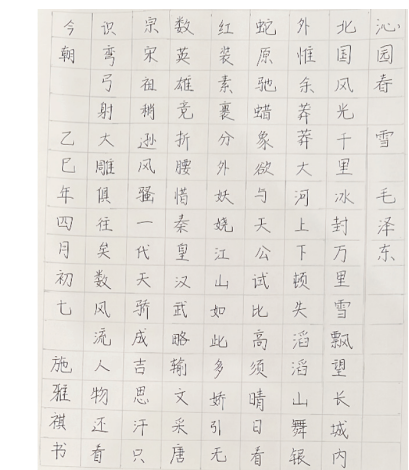 沁园春 雪 毛泽东
北国风光千里冰封万里雪飘望长城内
外惟余莽莽大河上下顿失滔滔山舞银
蛇原驰蜡象欲与天公试比高须晴日看
红装素裹分外妖娆江山如此多娇引无
数英雄竞折腰惜秦皇汉武略输文采唐
宗宋祖稍逊风骚一代天骄成吉思汗只
识弯弓射大雕俱往矣数风流人物还看
今朝 乙巳年四月初七 施雅祺书